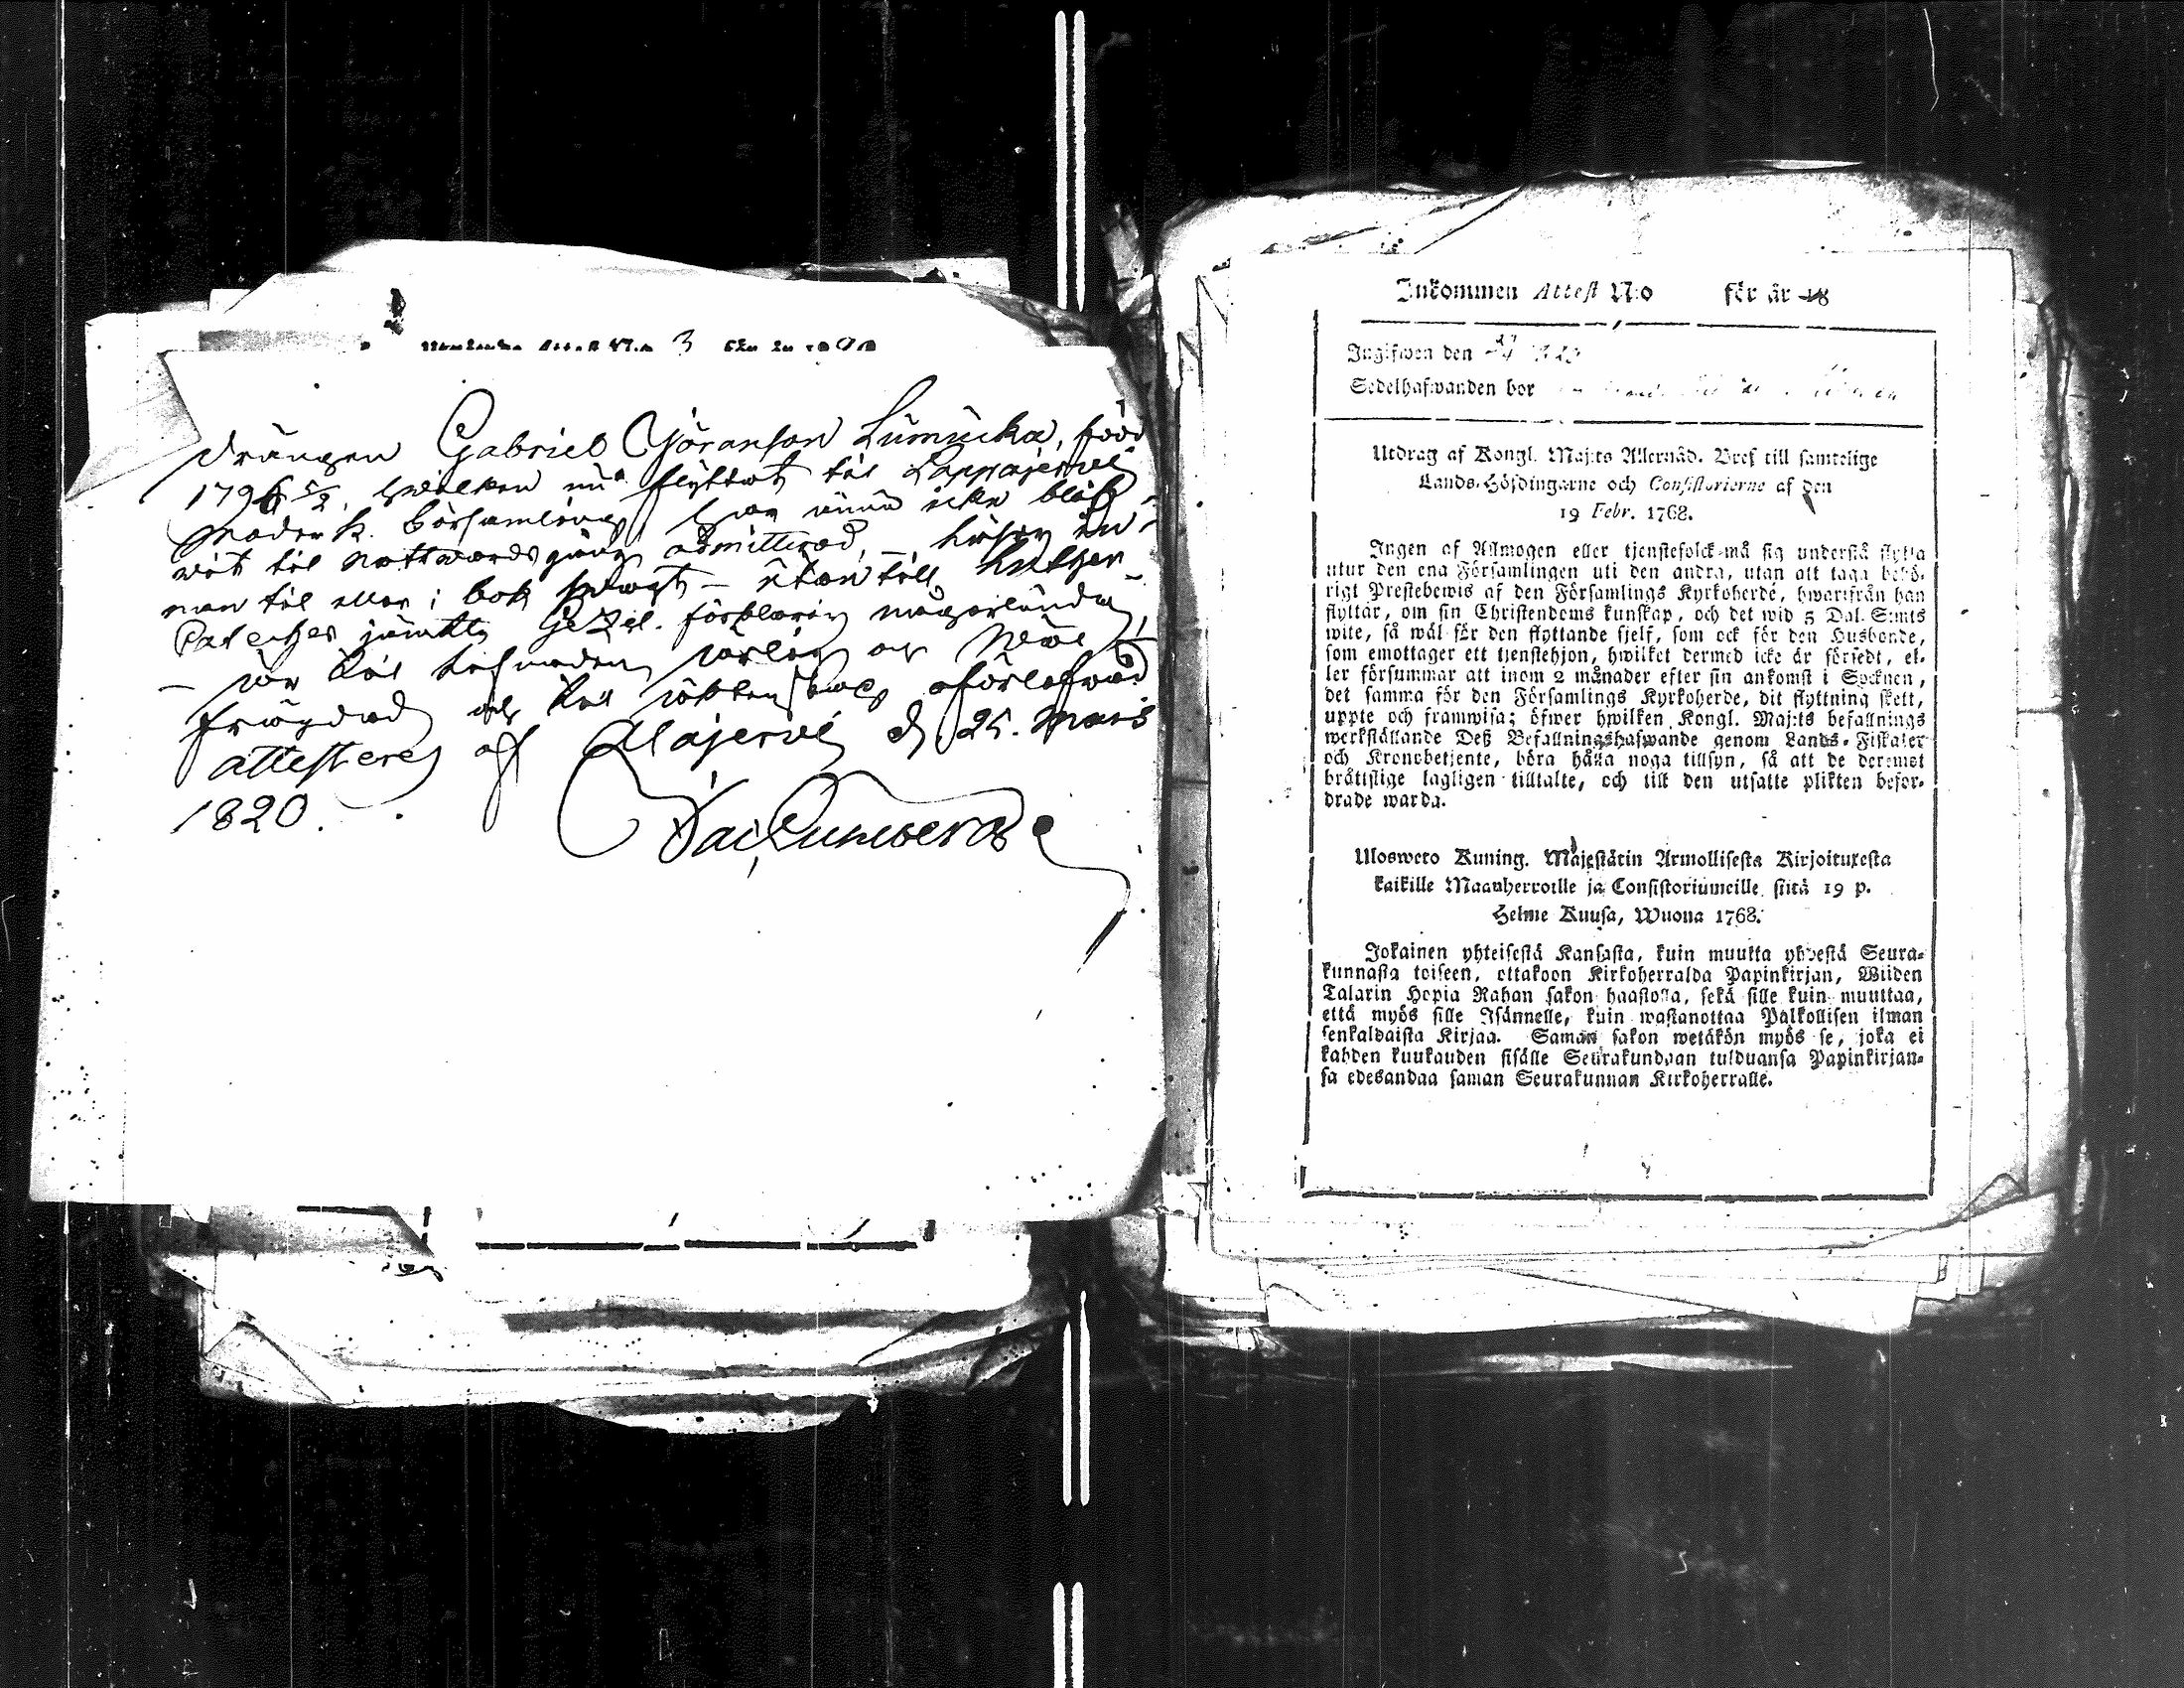 Inkommen Attest N:o 3 för år 1820
Drängen Gabriel Göranson Lumucka, född
1796 5/2, hwilken nu flyttat til Lappajerwi
Moderk. Församling, har ännu icke blif-
wit til Nattwardsgång admitterad, – läser in-
nan til eller i bok swagt – utan till Luther
Catecheser jämte Gezel. förklaring någorlunda,
– är til lefnaden ärlig och
frägdad och til äktenskap oförlofwad
attesteres af Alajerwi d. 25. Mars
1820.
Inkommen Attest N:o för år 18
Ingifwen den
Sedelhafwanden bor
Utdrag af Kongl. Maj:ts Allernåd. Bref till samtelige
Lands-Höfdingarne och Consistorierne af den
19 Febr. 1768.
Ingen af Allmogen eller tjenstefolck må sig understå flytta
utur den ena Församlingen uti den andra, utan att taga behö-
rigt Prestebewis af den Församlings Kyrkoherde, hwarifrån han
flyttar, om sin Christendoms kunskap, och det wid 5 Dal. S:mts
wite, så wäl för den flyttande sjelf, som ock för den Husbonde,
som emottager ett tjenstehjon, hwilket dermed icke är försedt, el-
ler försummar att inom 2 månader efter sin ankomst i Socknen,
det samma för den Församlings Kyrkoherde, dit flyttning skett,
uppte och framwisa; öfwer hwilken Kongl. Maj:ts befallnings
werkställande Deß Befallningshafwande genom Lands-Fiskaler
och Kronobetjente, böra hålla noga tillsyn, så att de deremot
bråttslige lagligen tilltalte, och till den utsatte plikten befor-
drade warda.
Ulosweto Kuning. Majestätin Armollisesta Kirjoituxesta
kaikille Maanherroille ja Consistoriumeille, siitä 19 p.
Helme Kuusa, Wuona 1768.
Jokainen yhteisestä Kansasta, kuin muutta yhdestä Seura-
kunnasta toiseen, ottakoon Kirkoherralda Papinkirjan, Wiiden
Talarin Hopia Rahan sakon haastolla, sekä sille kuin muuttaa,
että myös sille Isännelle, kuin wastanottaa Palkollisen ilman
senkaldaista Kirjaa. Saman sakon wetäkön myös se, joka ei
kahden kuukauden sisälle Seurakundaan tulduansa Papinkirjan-
sa edesandaa saman Seurakunnan Kirkoherralle.